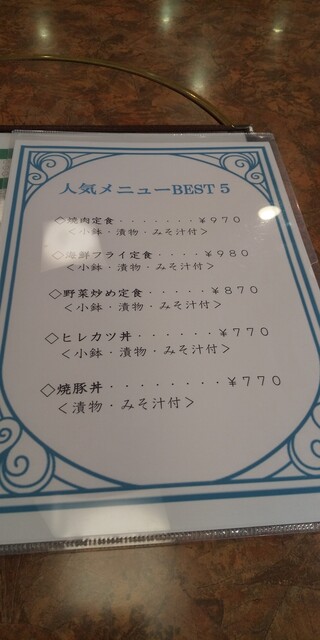 人気メニューBEST5
◇焼肉定食・・・・・・・¥970
＜小鉢・漬物・みそ汁付＞
◇海鮮フライ定食・・・・¥980
＜小鉢・漬物・みそ汁付＞
◇野菜炒め定食・・・・・¥870
＜小鉢・漬物・みそ汁付＞
◇ヒレカツ丼・・・・・・¥770
＜小鉢・漬物・みそ汁付＞
◇焼豚丼・・・・・・・・¥770
＜漬物・みそ汁付＞